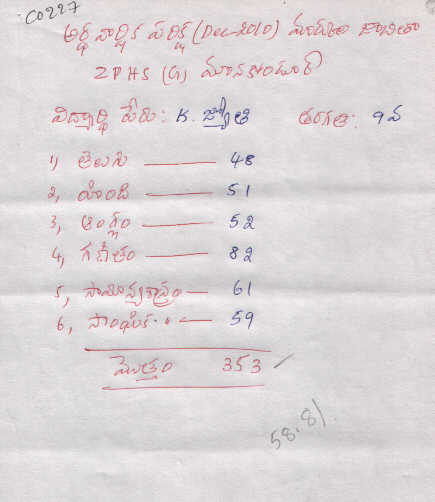 C0227
అర్ధ వార్షిక పరీక్ష (Dec-2010) మార్కుల జాబితా
ZPHS (G) మానకొండూర్
విద్యార్థి పేరు: K. జ్యోతి తరగతి: 9వ
1, తెలుగు — 48
2, హింది — 51
3, ఆంగ్లం — 52
4, గణితం — 82
5, సామాన్యశాస్త్రం — 61
6, సాంఘిక. — 59
మొత్తం 353 ✓
58.8%